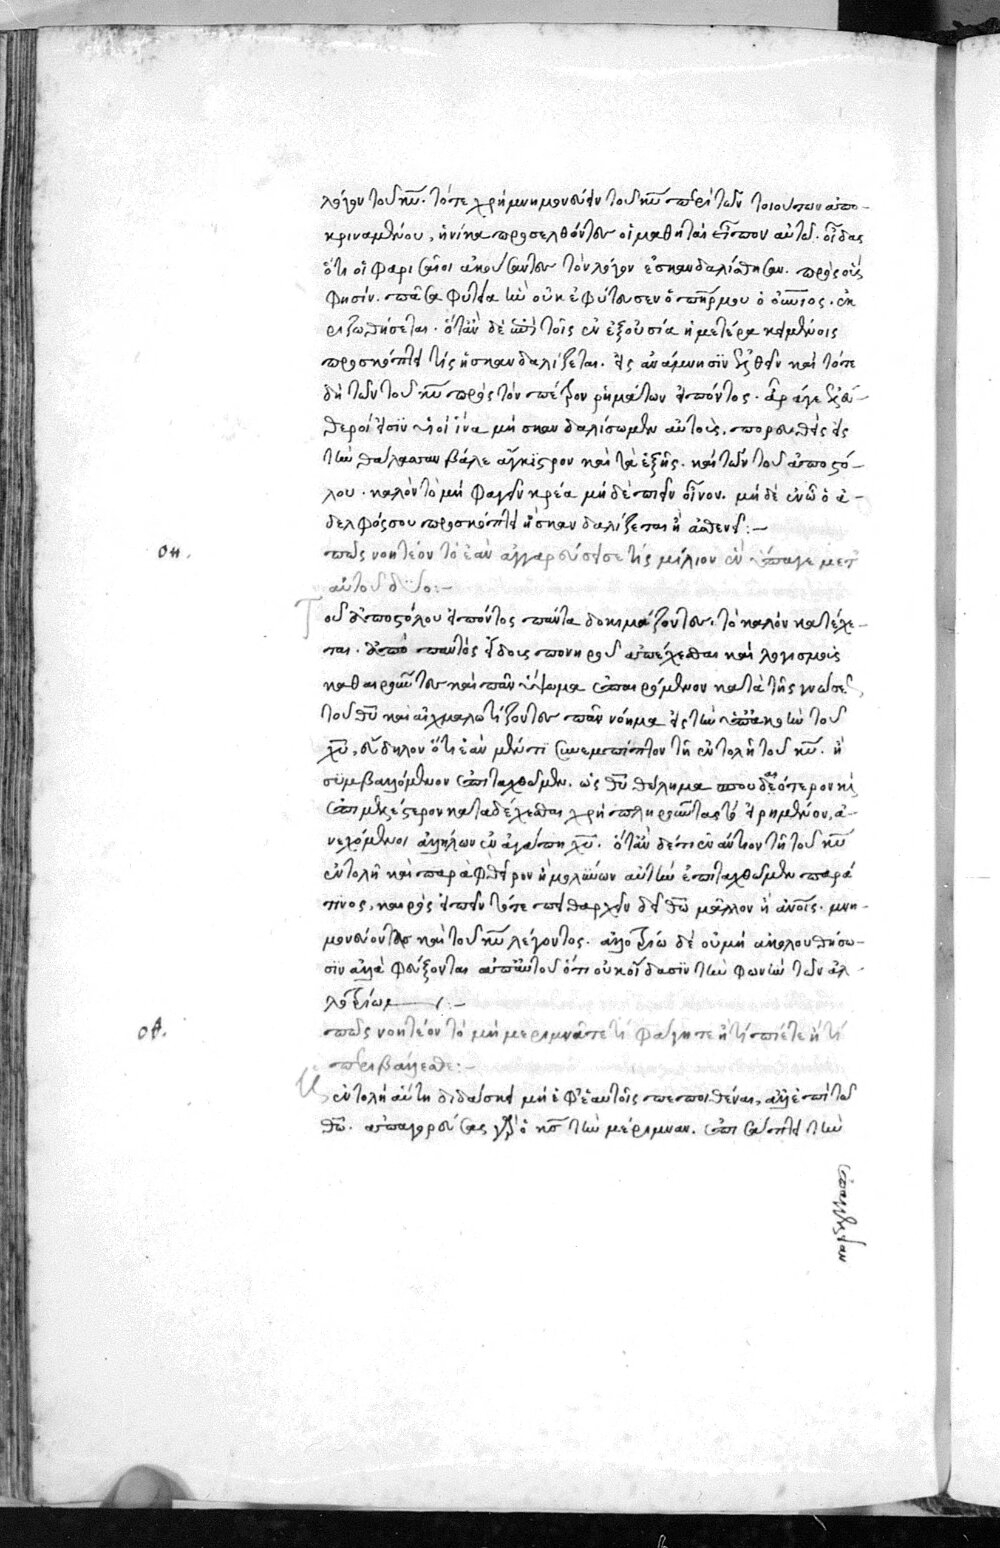 λόγον τοῦ κυ. τότε χρὴ μνημονεύειν τοῦ κυ περὶ τῶν τοιούτων ἀπο-
κριναμένου, ἡνίκα προσελθόντες οἱ μαθηταὶ εἶπον αὐτῷ. οἶδας
ὅτι οἱ φαρισαῖοι ἀκούσαντες τὸν λόγον ἐσκανδαλίσθησαν. πρὸς οὓς
φησίν. πᾶσα φυτεία ἣν οὐκ ἐφύτευσεν ὁ πηρ μου ὁ οὐνιος. ἐκ
ριζωθήσεται. ὅταν δὲ ἐπὶ τοῖς ἐν ἐξουσία ἡμετέρα κειμένοις
προσκόπτει τίς ἢ σκανδαλίζεται. εἰς ἀνάμνησιν ἐλθεῖν καὶ τότε
δεῖ τῶν τοῦ κυ πρὸς τὸν πέτρον ρημάτων εἰπόντος. ἄρα γε ἐλεύ-
θεροί εἰσιν οἱ υἱοί ἵνα μὴ σκανδαλίσωμεν αὐτοὺς. πορευθεὶς εἰς
τὴν θάλασσαν βάλε ἄγκιστρον καὶ τὰ ἑξῆς. καὶ τῶν τοῦ ἀποστό-
λου. καλὸν τὸ μὴ φαγεῖν κρέα μὴ δὲ πιεῖν οἶνον. μὴ δὲ ἐν ᾧ ὁ ἀ-
δελφός σου προσκόπτει ἢ σκανδαλίζεται ἢ ἀσθενεῖ:—
οη. πῶς νοητέον τὸ ἐὰν ἀγγαρεύσει σε τίς μίλιον ἓν ὕπαγε μετ
αὐτοῦ δύο:—
Τοῦ ἀποστόλου εἰπόντος πάντα δοκιμάζοντες. τὸ καλὸν κατέχε-
ται. ἀπὸ παντὸς εἴδους πονηροῦ ἀπέχεσθαι καὶ λογισμοὺς
καθαιροῦντες καὶ πᾶν ὕψωμα ἐπαιρόμενον κατὰ τῆς γνώσεως
τοῦ θυ καὶ αἰχμαλωτίζοντες πᾶν νόημα εἰς τὴν ὑπακοὴν τοῦ
χυ, εὔδηλον ὅτι ἐὰν μέν τι συνεμπίπτον τῇ ἐντολῇ τοῦ κυ. ἢ
συμβαλλόμενον ἐπιταχθῶμεν. ὡς θυ θέλημα σπουδαιότερον καὶ
ἐπιμελέστερον καταδέχεσθαι χρὴ πληροῦντας τὸ εἰρημένον, ἀ-
νεχόμενοι ἀλλήλων ἐν ἀγάπη χυ. ὅταν δέ τι ἐναντίον τῆ τοῦ κυ
ἐντολῇ καὶ παραφθεῖρον ἢ μολύνον αὐτὴν ἐπιταχθῶμεν παρά
τινος, καιρὸς εἰπεῖν τότε πειθαρχεῖν δεῖ θῶ μᾶλλον ἢ ἀνοις. μνη-
μονεύοντες καὶ τοῦ κυ λέγοντος. ἀλλοτρίω δὲ οὐ μὴ ἀκολουθήσω-
σιν ἀλλὰ φεύξονται ἀπ' αὐτοῦ ὅτι οὐκ οἴδασιν τὴν φωνὴν τῶν ἀλ-
λοτρίων:—
οθ. πῶς νοητέον τὸ μὴ μεριμνᾶτε τί φάγητε ἢ τί πίετε ἢ τί
περιβάλλεσθε:—
Ἡ ἐντολὴ αὕτη διδάσκει μὴ ἐφ' ἑαυτοῖς πεποιθέναι, ἀλλ' ἐπὶ τῶ
θῶ. ἀπαγορεύσας γὰρ ὁ κς τὴν μέριμναν. ἐπισυνάπτει τὴν
ἐπαγγελίαν